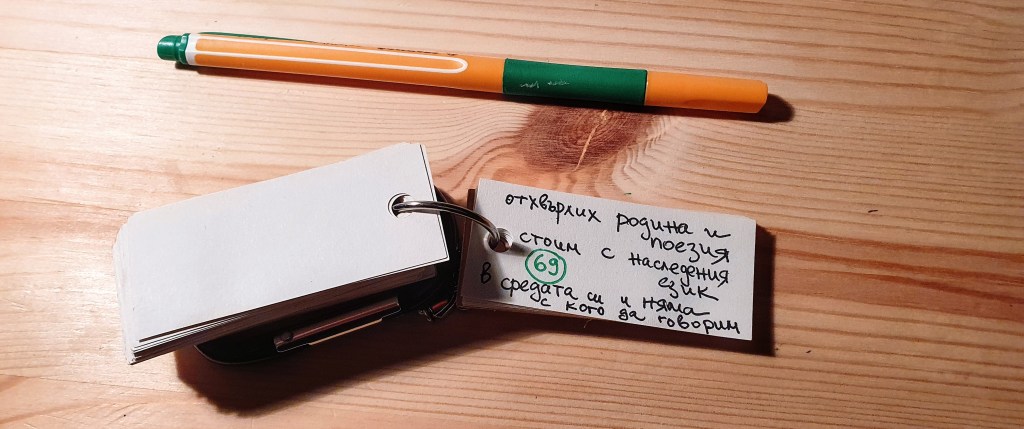 отхвърлих родина и
поезия
стоим с наследения
език
69
в средата си и няма
с кого да говорим